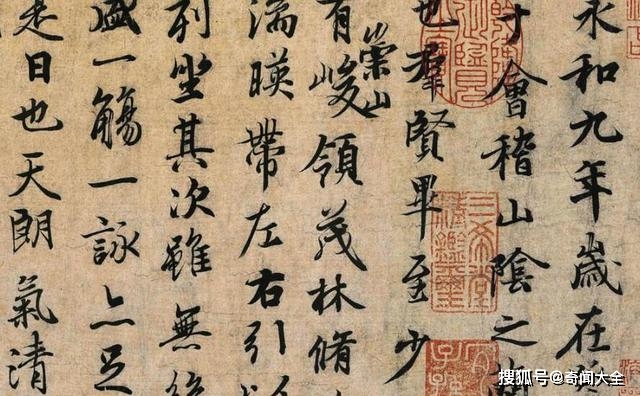 永和九年歲在癸
于會稽山陰之蘭
也羣賢畢至少
有崇山峻領茂林脩
湍暎帶左右引以
列坐其次雖無絲
盛一觴一詠亦足
是日也天朗氣清
三希堂精鑑璽
宜子孫
搜狐号@奇闻大全